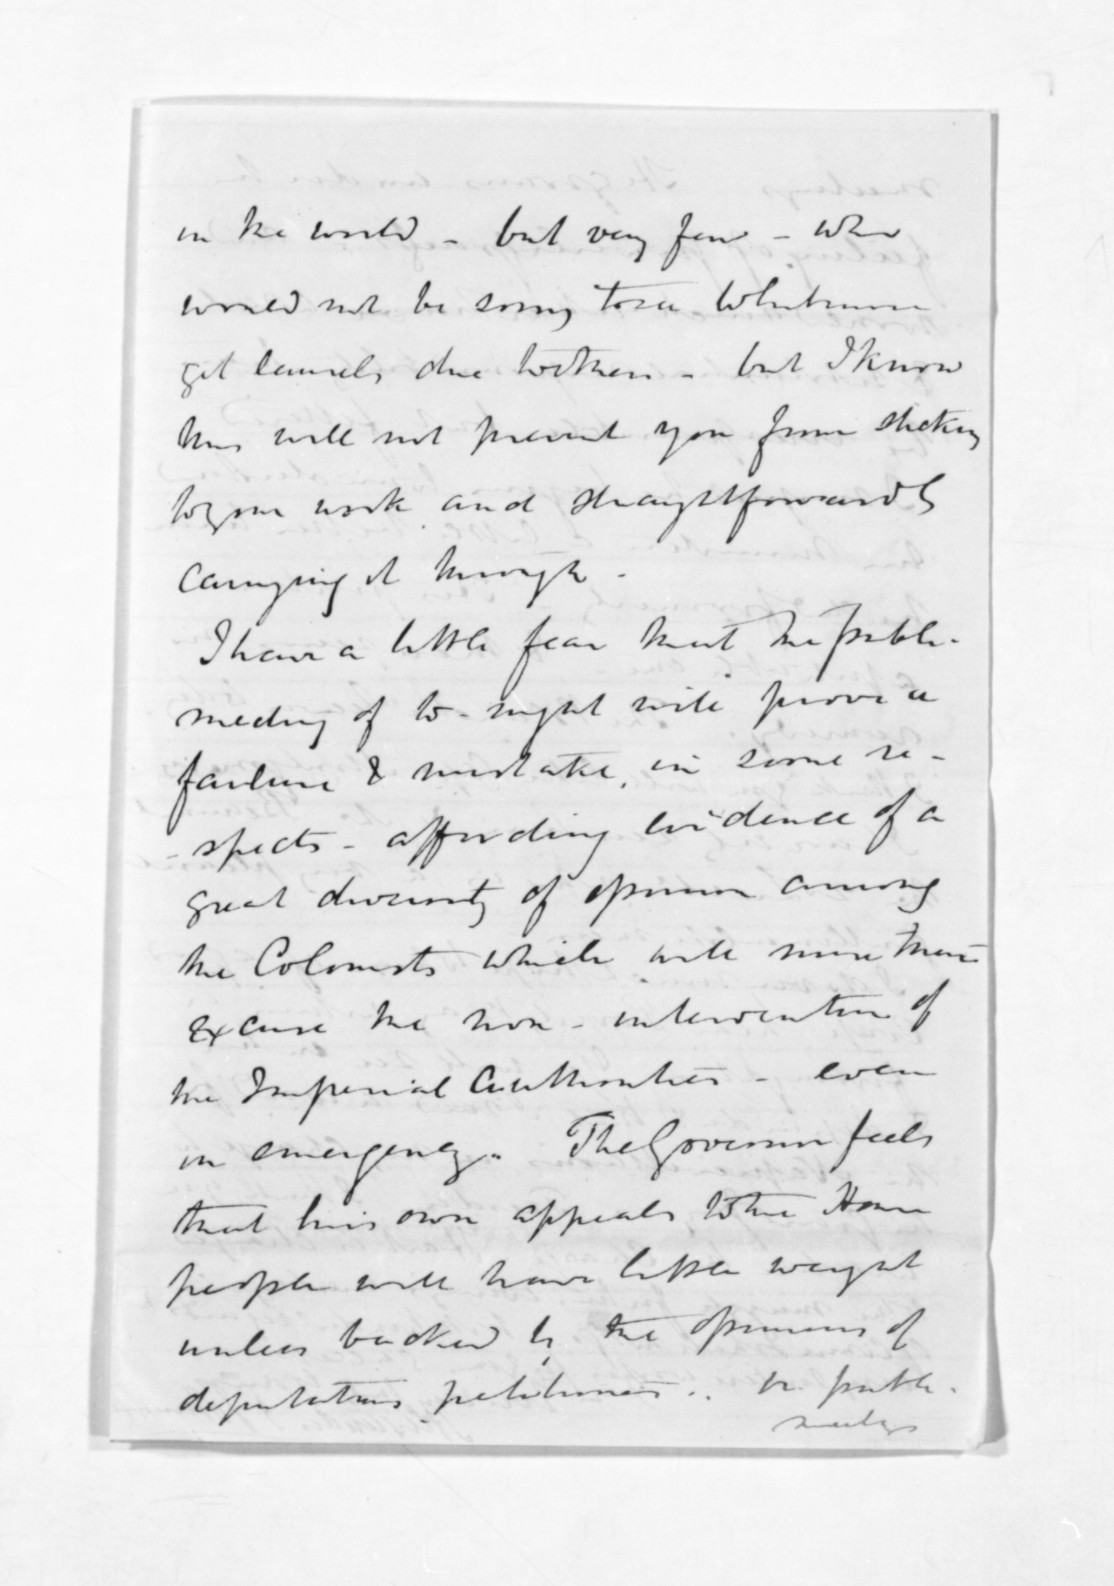 in the world - but very few - who
would not be sorry to see Whitmore
get laurels due to others - but I know
this will not prevent you from sticking
to your work and straightforwardly
carrying it through -
I have a little fear that the public
meeting of to-night will prove a
failure & mistake, in some re-
-spects - affording evidence of a
great diversity of opinion among
the Colonists which will more than
excuse the non-intervention of
the Imperial Authorities - even
in emergency. The Governor feels
that his own appeals to the Home
people will have little weight
unless backed by the opinions of
deputations petitions .. or public
meetings